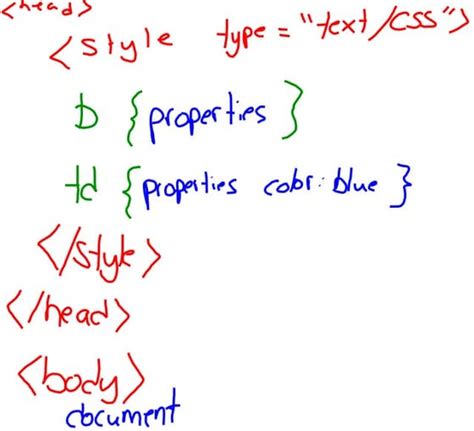 <head>
<style type = "text/css">
b {properties}
td {properties color: blue}
</style>
</head>
<body>
document